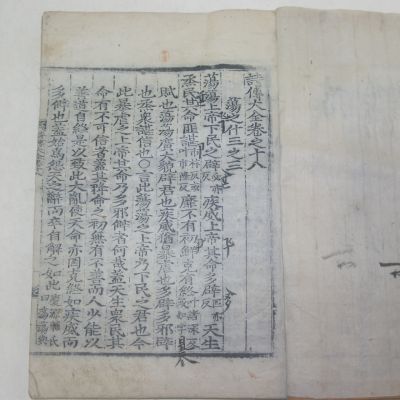 詩傳大全卷之十八
蕩之什三之三
蕩蕩上帝下民之辟疾威上帝其命多辟天生
烝民其命匪諶靡不有初鮮克有終
賦也蕩蕩廣大貌辟君也疾威猶暴虐也多辟多邪辟
也烝衆諶信也○言此蕩蕩之上帝乃下民之君也今
此暴虐之上帝其命乃多邪辟者何哉蓋天生衆民其
命有不可信者蓋其降命之初無有不善而人少能以
善道自終是以致此大亂使天命亦罔克終如疾威而
多辟也蓋始爲怨天之辭而卒自解之如此